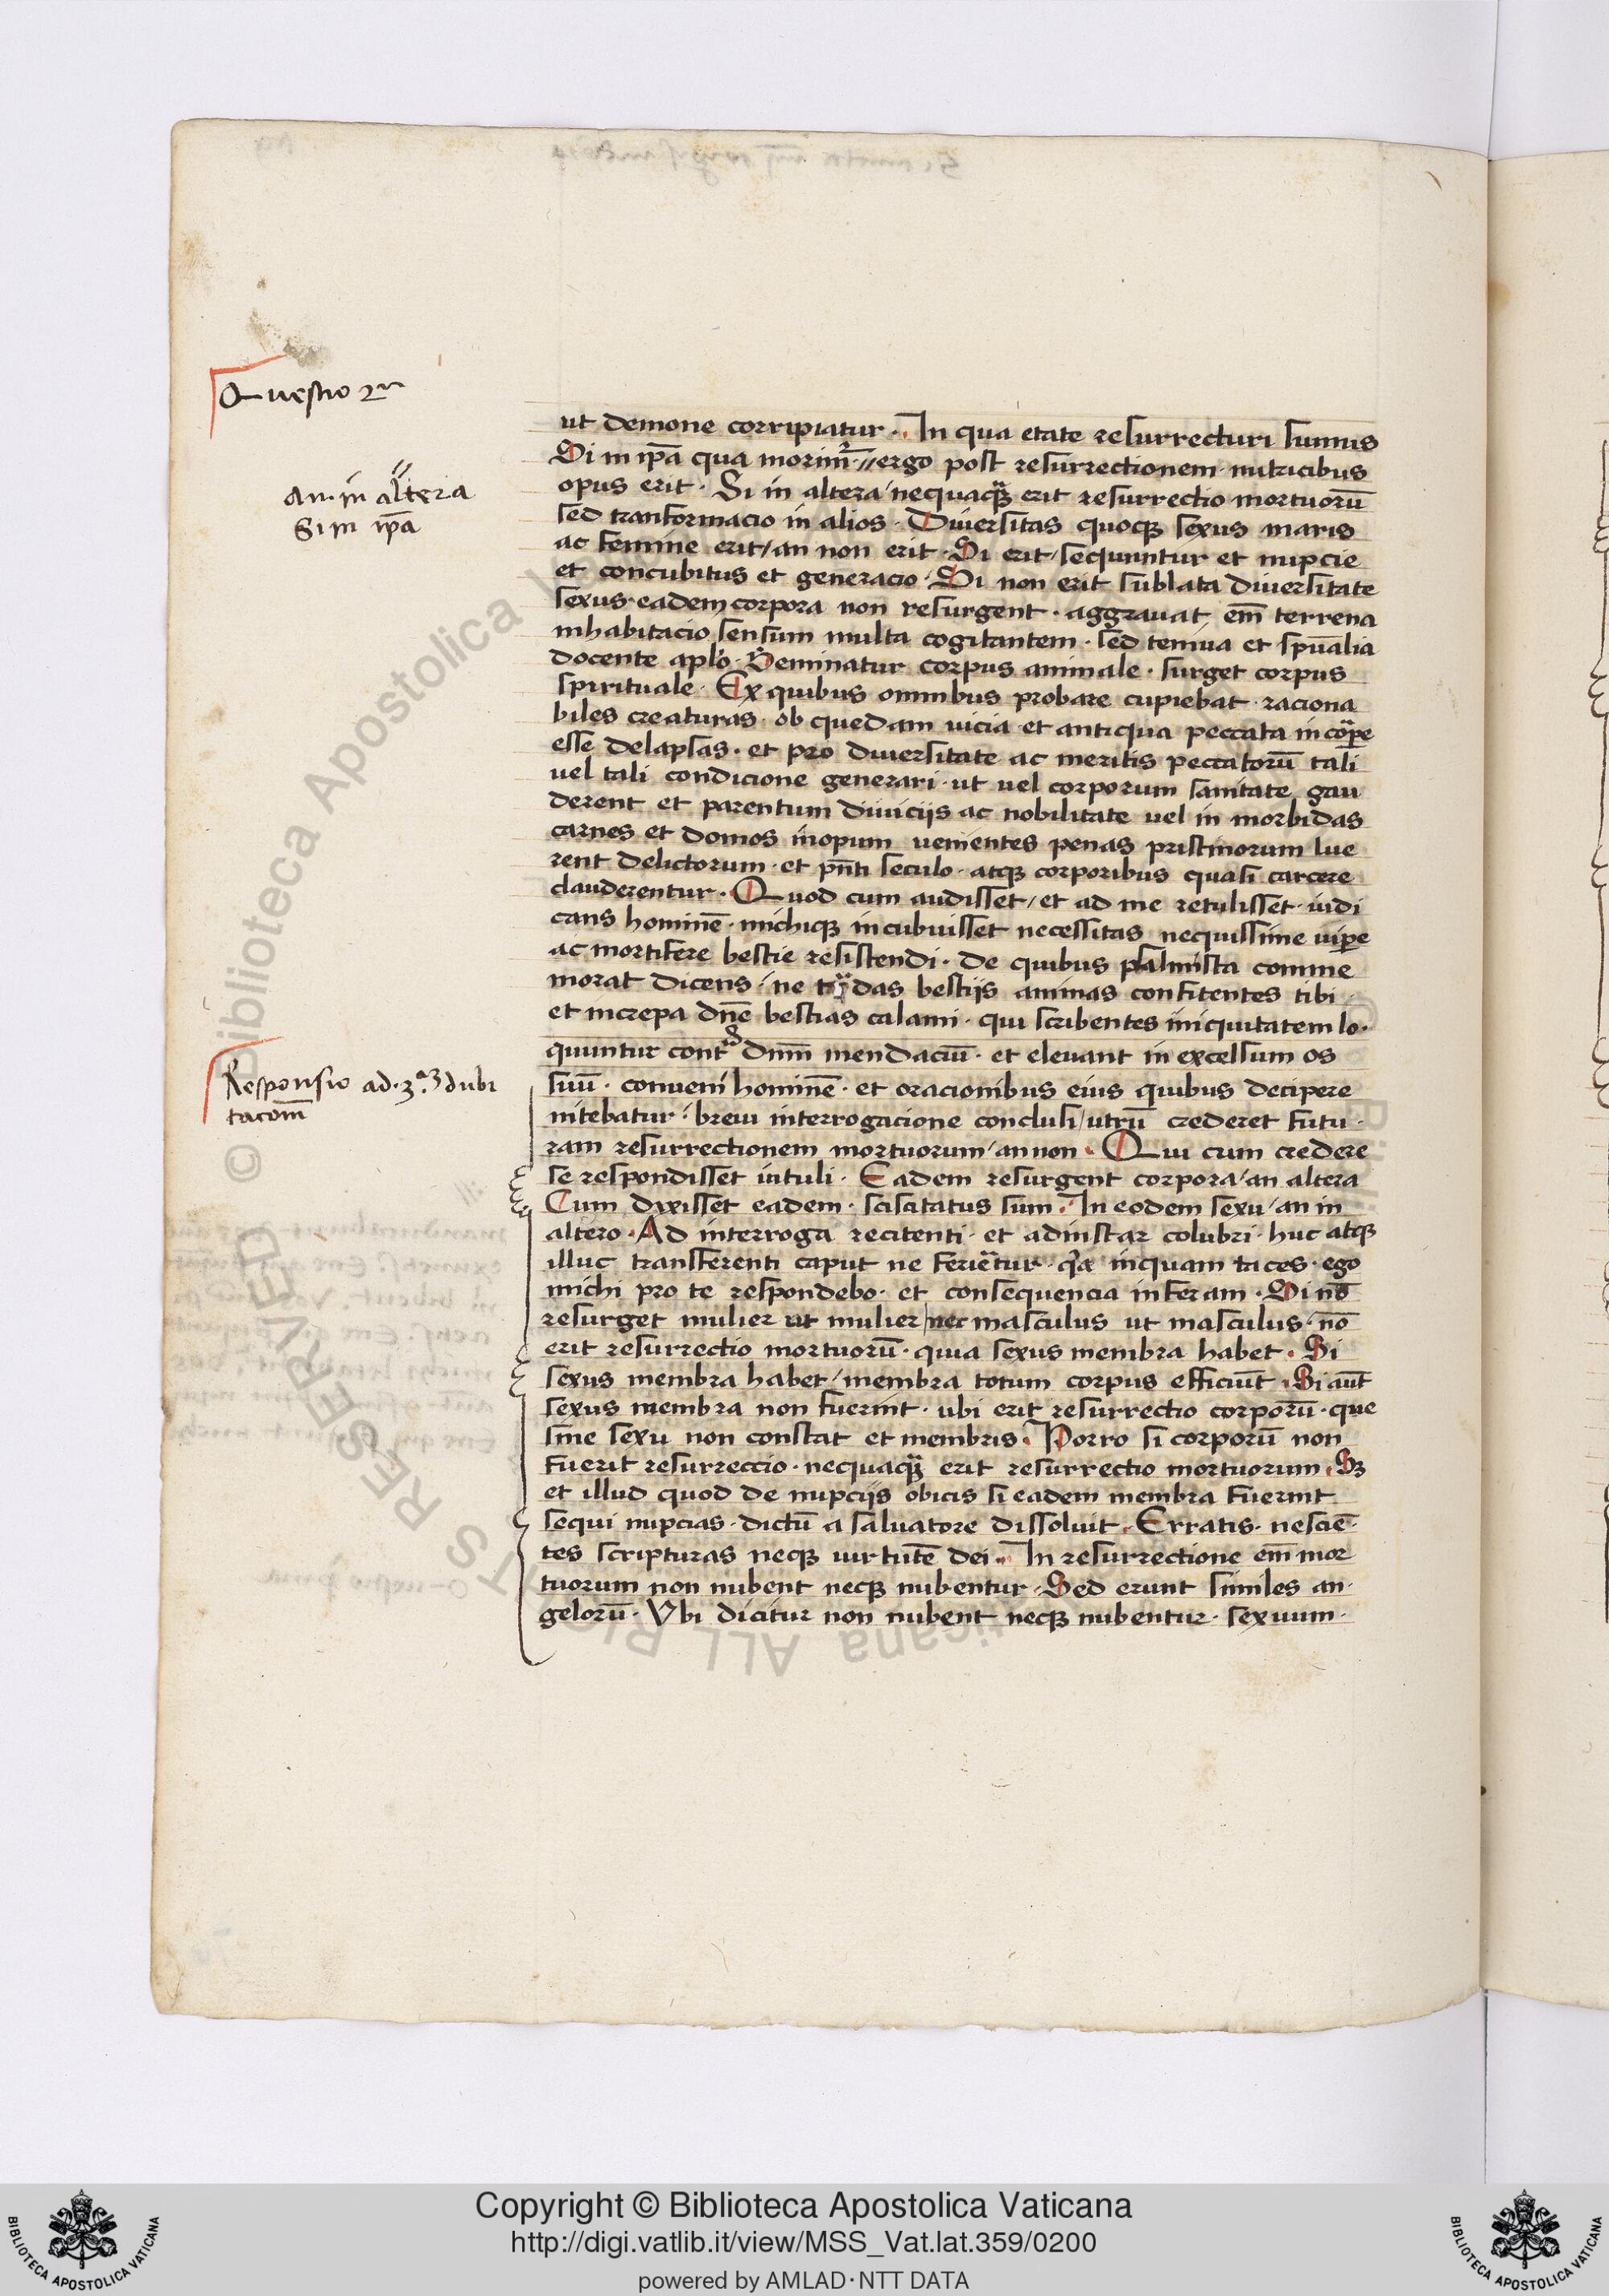 Questio 2a
an in altera
Si in ip̄a
ut demone corripiatur · In qua etate resurrecturi sumus
Si in ip̄a qua morim̄r // ergo post resurrectionem nutricibus
opus erit · Si in altera / nequaq̄ erit resurrectio mortuorū
sed transformacio in alios · Diuersitas quoqꝫ sexus maris
ac femine erit / an non erit · Si erit / sequuntur et nupcie
et concubitus et generacio · Si non erit sublata diuersitate
sexus eadem corpora non resurgent · aggrauat em̄ terrena
inhabitacio sensum multa cogitantem · sed tenuia et sp̄ualia
docente aplo · Seminatur corpus animale · surget corpus
spirituale · Ex quibus omnibus probare cupiebat raciona
biles creaturas ob quedam uicia et antiqua peccata in corꝑe
esse delapsas · et pro diuersitate ac meritis peccatorū tali
uel tali condicione generari · ut uel corporum sanitate gau
derent et parentum diuicijs ac nobilitate uel in morbidas
carnes et domos inopum uenientes penas pristinorum lue
rent delictorum · et pn̄ti seculo · atqꝫ corporibus quasi carcere
clauderentur · Quod cum audisset / et ad me retulisset iudi
cans hominē · michiqꝫ incubuisset necessitas nequissime uiꝑe
ac mortifere bestie resistendi · de quibus psalmista comme
morat dicens / ne tradas bestijs animas confitentes tibi ·
et increpa dn̄e bestias calami · qui scribentes iniquitatem lo·
quuntur contra dn̄m mendaciū · et eleuant in excelsum os
Responsio ad 3am dubi
tacōm
suū · conueni hominē · et oracionibus eius quibus decipere
nitebatur / breui interrogacione conclusi / utrū crederet futu·
ram resurrectionem mortuorum / an non · Qui cum credere
se respondisset intuli · Eadem resurgent corpora / an altera
Cum dixisset eadem · sciscitatus sum · In eodem sexu / an in
altero · Ad interroga recitenti · et adinstar colubri · huc atqꝫ
illuc transferenti caput ne feriatur · inquam taces · ego
michi pro te respondebo · et consequencia inferam · Si nō
resurget mulier ut mulier / nec masculus ut masculus · nō
erit resurrectio mortuorū · quia sexus membra habet · Si
sexus membra habet / membra totum corpus efficiūt · Si aūt
sexus membra non fuerint · ubi erit resurrectio corporū · que
sine sexu non constat et membris · Porro si corporū non
fuerit resurreccio · nequaq̄ erit resurrectio mortuorum · Sꝫ
et illud quod de nupcijs obicis si eadem membra fuerint
sequi nupcias · dictū a saluatore dissoluit · Erratis · nesciē·
tes scripturas neqꝫ uirtutē dei · In resurrectione em̄ mor
tuorum non nubent neqꝫ nubentur · Sed erunt similes an·
gelorū · Vbi dicitur non nubent neqꝫ nubentur · sexuum ·
© Biblioteca Apostolica Vaticana ALL RIGHTS RESERVED
Copyright © Biblioteca Apostolica Vaticana
http://digi.vatlib.it/view/MSS_Vat.lat.359/0200
powered by AMLAD·NTT DATA
BIBLIOTECA APOSTOLICA VATICANA
BIBLIOTECA APOSTOLICA VATICANA